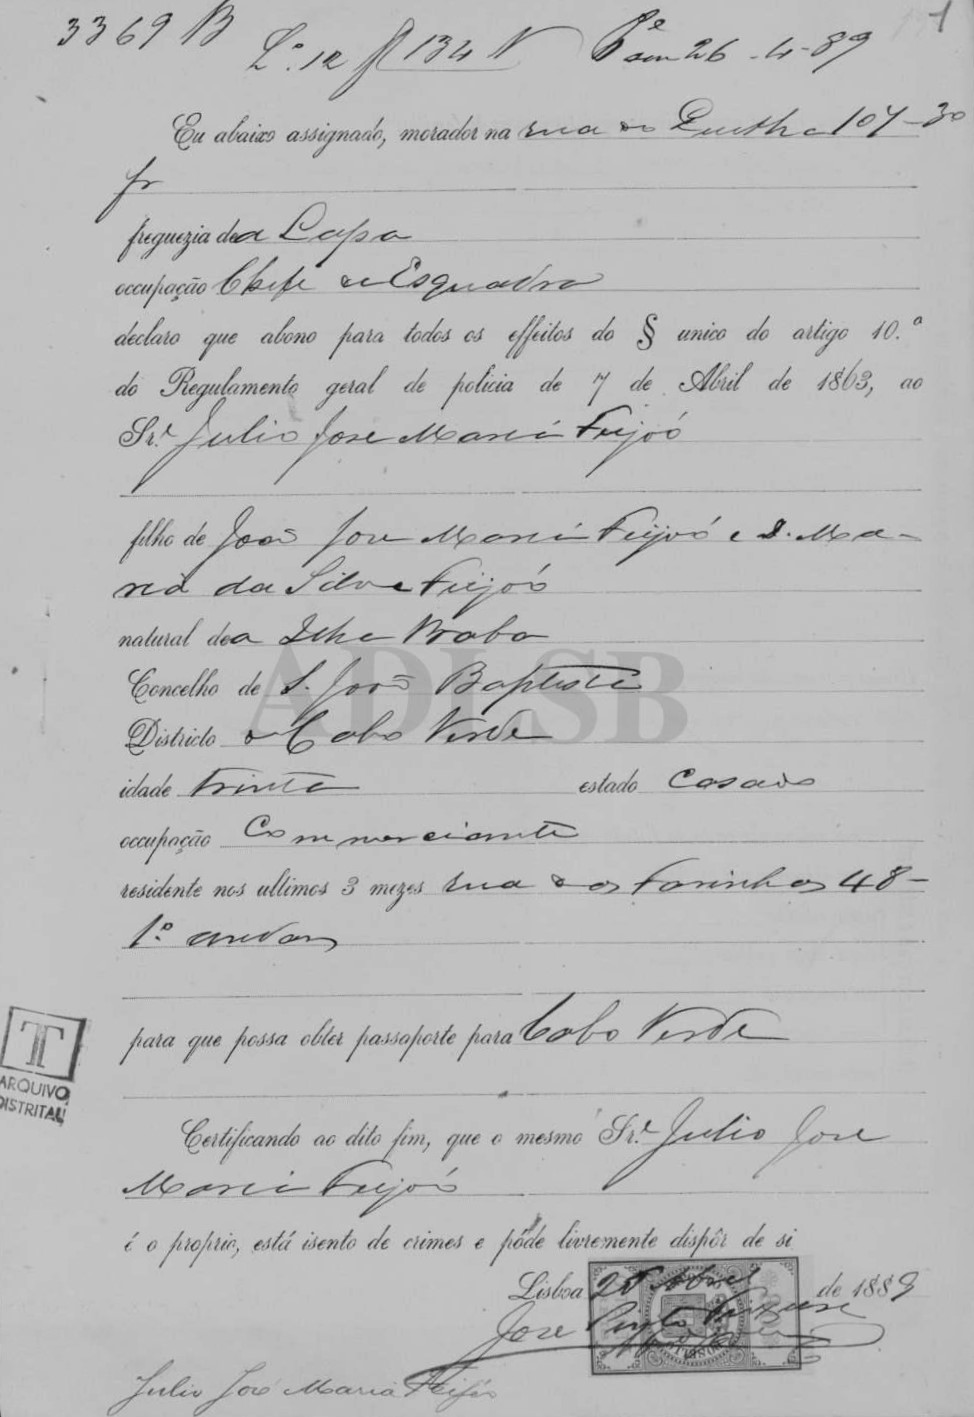 3369 B
L.º 12 f 134 N Pe em 26-4-89
1
Eu abaixo assignado, morador na rua do 107-3º
fr
freguezia de da Lapa
occupação Chefe de Esquadra
declaro que abono para todos os effeitos do § unico do artigo 10.º
do Regulamento geral de policia de 7 de Abril de 1863, ao
Sr. Julio Jose Maria Feijoó
filho de João Jose Maria Feijoó e D. Ma-
ria da Silva Feijoó
natural de da Ilha Braba
Concelho de S. João Baptista
Districto de Cabo Verde
idade trinta estado Casado
occupação Commerciante
residente nos ultimos 3 mezes rua das Farinhas 48-
1º andar
para que possa obter passaporte para Cabo Verde
ADLSB
T
ARQUIVO
DISTRITAL
Certificando ao dito fim, que o mesmo Sr. Julio Jose
Maria Feijoó
é o proprio, está isento de crimes e póde livremente dispôr de si
Lisboa 25 Abril de 1889
Jose Pinto
Julio José Maria Feijóo